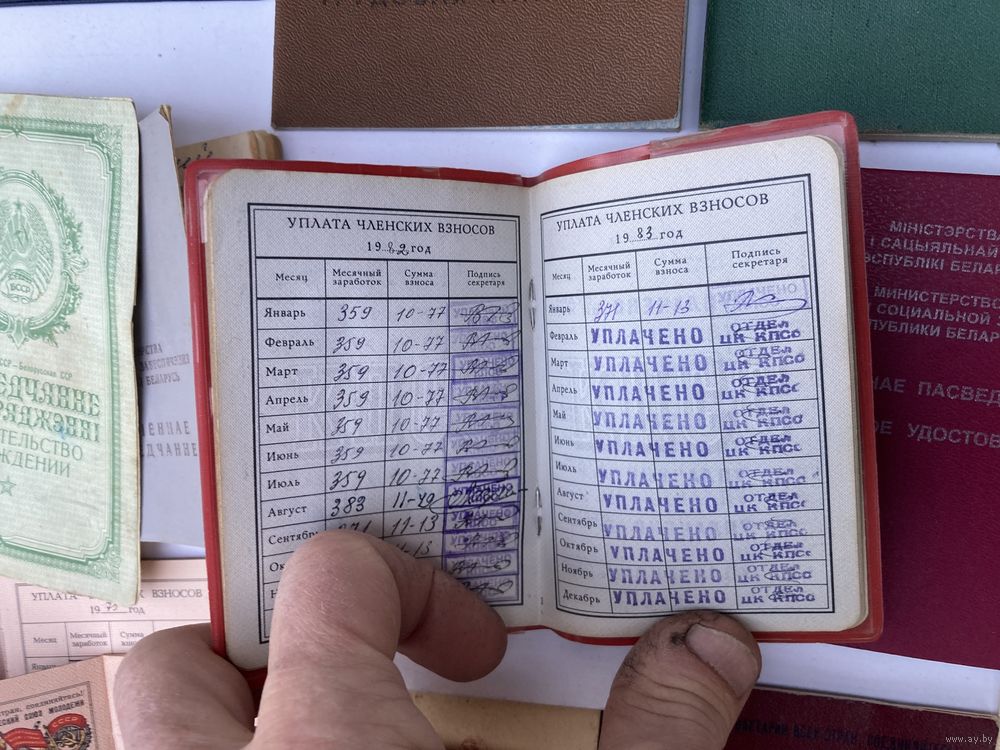 УПЛАТА ЧЛЕНСКИХ ВЗНОСОВ
1982 год
Месяц Месячный заработок Сумма взноса Подпись секретаря
Январь 359 10-77
Февраль 359 10-77
Март 359 10-77
Апрель 359 10-77
Май 359 10-77
Июнь 359 10-77
Июль 359 10-77
Август 383 11-49
Сентябрь 371 11-13
11-13
УПЛАТА ЧЛЕНСКИХ ВЗНОСОВ
1983 год
Месяц Месячный заработок Сумма взноса Подпись секретаря
Январь 371 11-13 УПЛАЧЕНО
Февраль УПЛАЧЕНО ОТДЕЛ ЦК КПСС
Март УПЛАЧЕНО ОТДЕЛ ЦК КПСС
Апрель УПЛАЧЕНО ОТДЕЛ ЦК КПСС
Май УПЛАЧЕНО ОТДЕЛ ЦК КПСС
Июнь УПЛАЧЕНО ОТДЕЛ ЦК КПСС
Июль УПЛАЧЕНО ОТДЕЛ ЦК КПСС
Август УПЛАЧЕНО ОТДЕЛ ЦК КПСС
Сентябрь УПЛАЧЕНО ОТДЕЛ ЦК КПСС
Октябрь УПЛАЧЕНО ОТДЕЛ ЦК КПСС
Ноябрь УПЛАЧЕНО ОТДЕЛ ЦК КПСС
Декабрь УПЛАЧЕНО ОТДЕЛ ЦК КПСС
БССР
МІНІСТЭРСТВА
І САЦЫЯЛЬНАЙ
МИНИСТЕРСТВО
СОЦИАЛЬНОЙ
УПЛАТА ЧЛЕНСКИХ ВЗНОСОВ
1973 год
Месяц Месячный заработок Сумма
Январь
СССР
www.ay.by